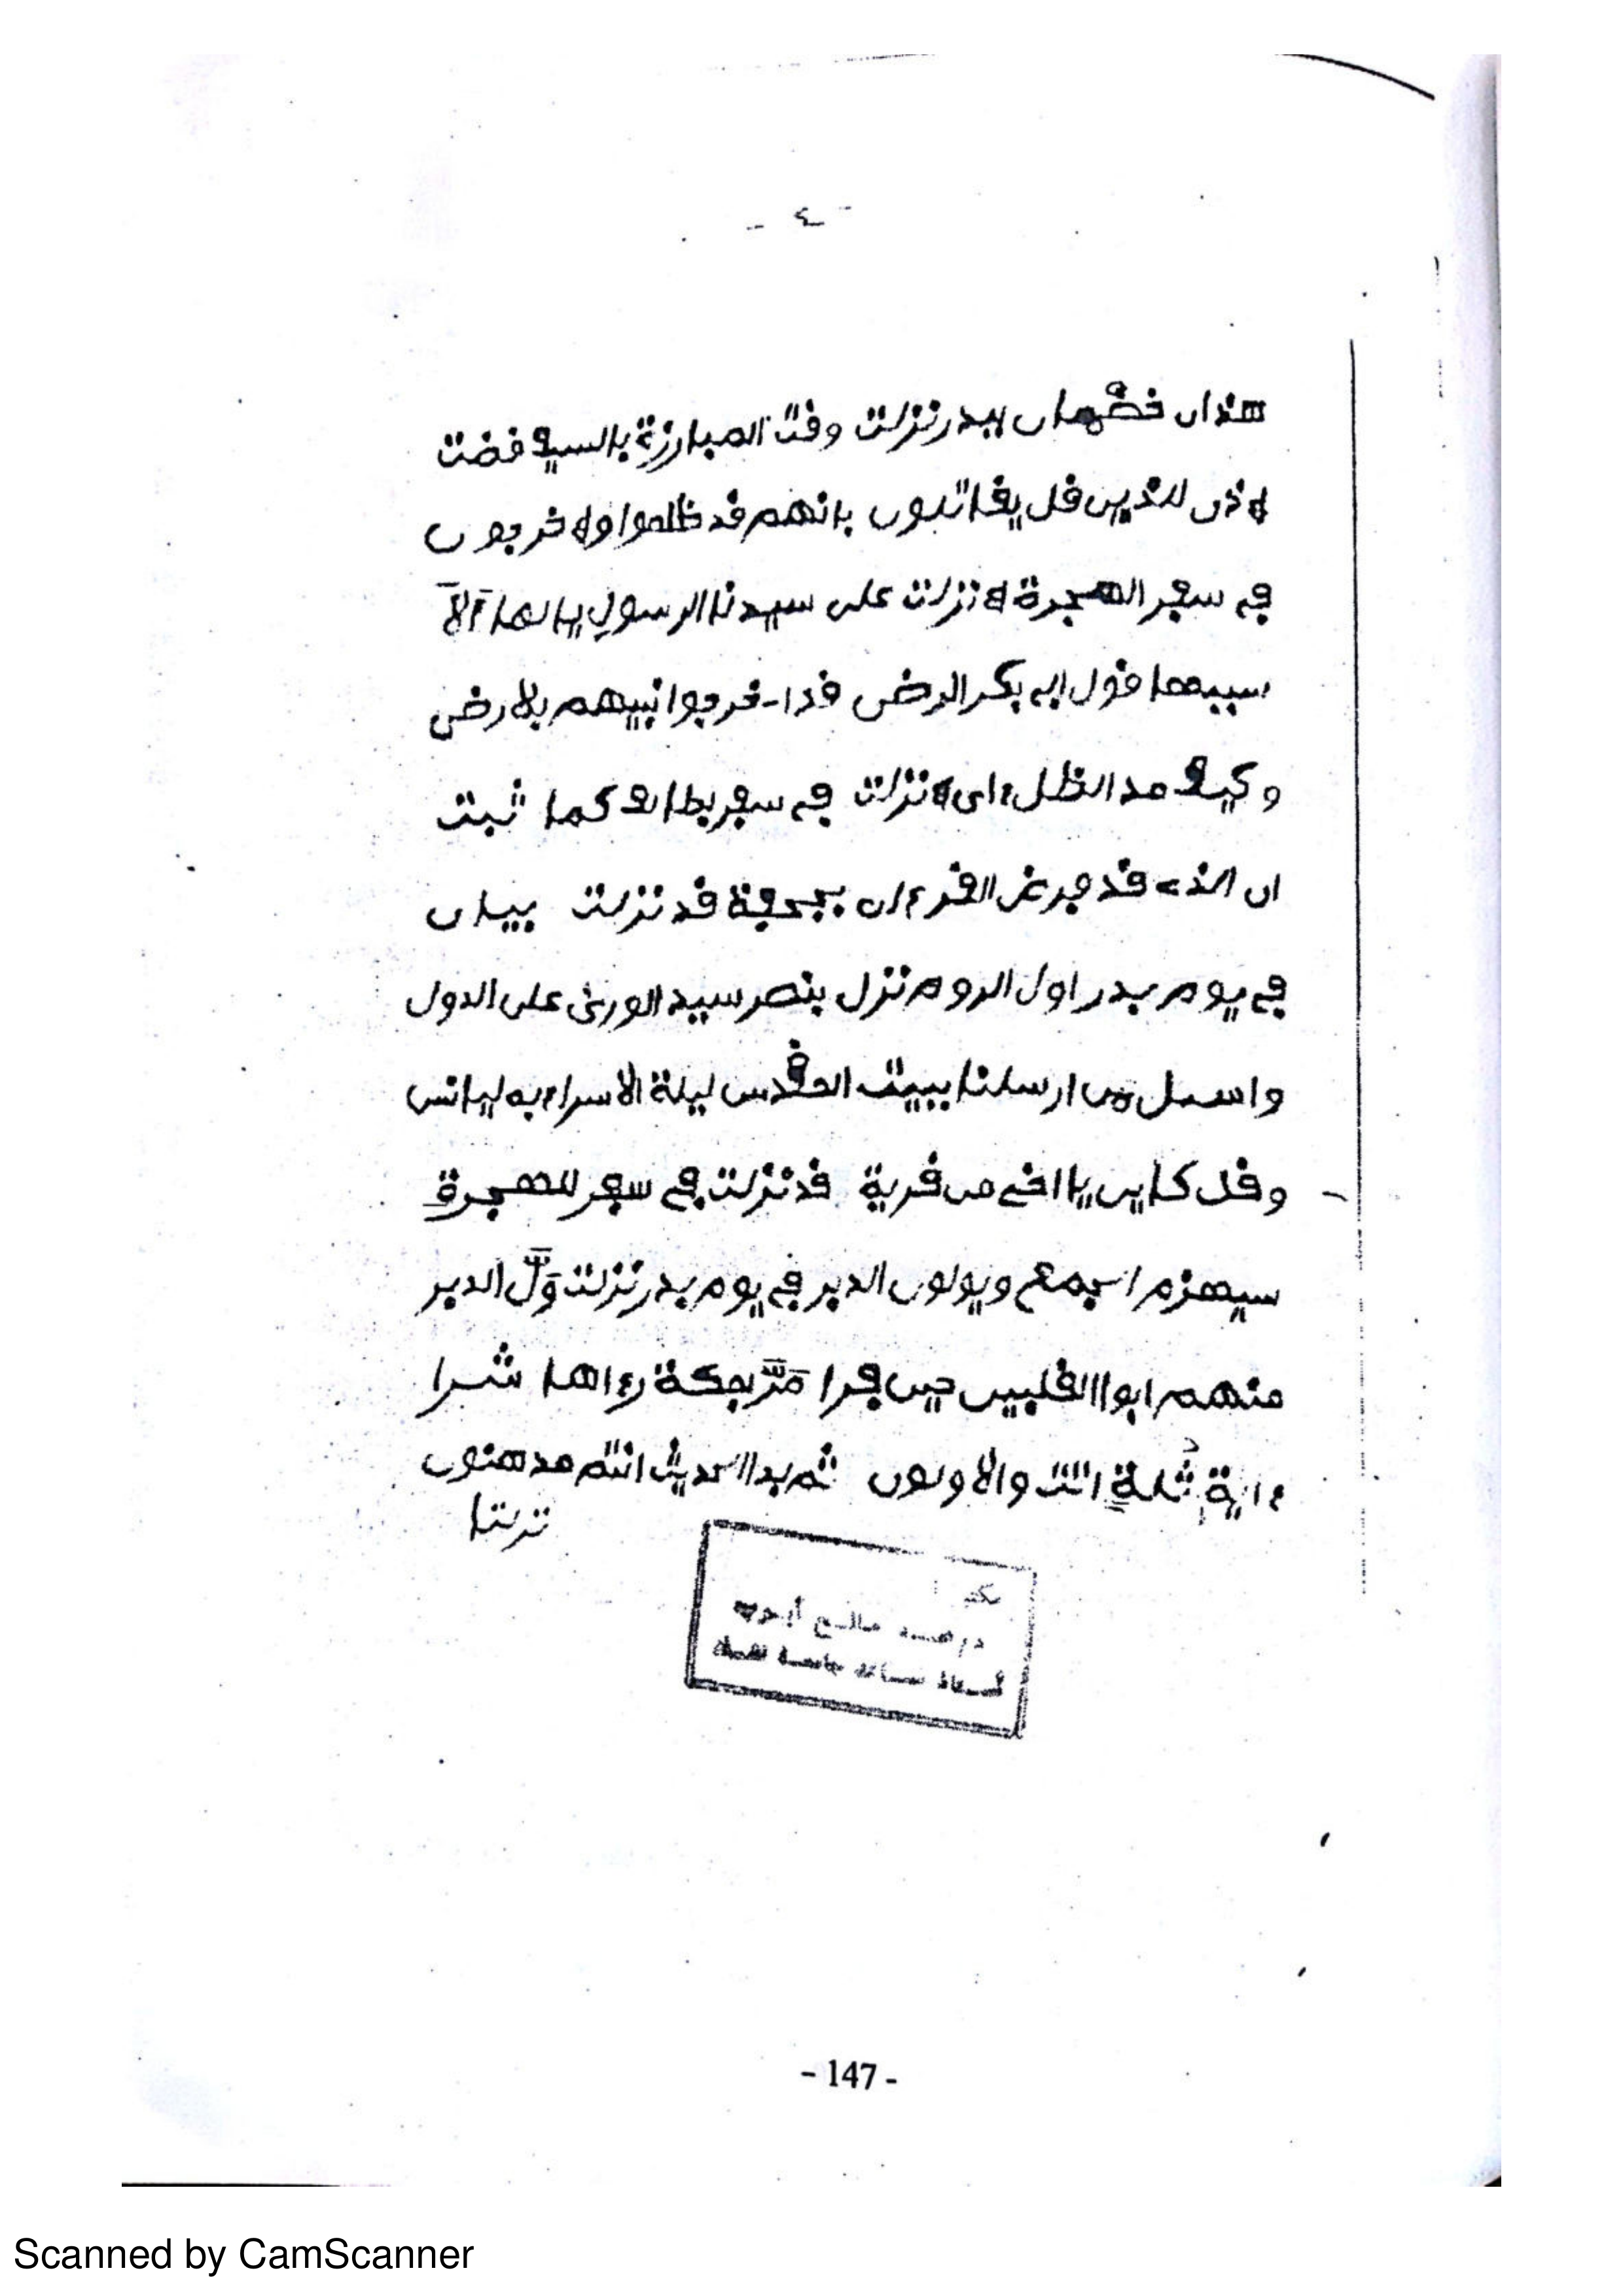 - ٤ -
هذان خصمان ببدر نزلت وقت المبارزة بالسيف قضت
اذن للذين قل يقاتلون بانهم قد ظلموا واخرجون
في سفر الهجرة انزلت على سيدنا الرسول
سببها قول ابي بكر الرضى قد اخرجوا نبيهم بالارض
وكيف مد الظل اي انزلت في سفر بطائف كما ثبت
ان الذي قد فرض القرءان بجحفة قد نزلت بيان
في يوم بدر اول الروم نزل بنصر سيد الورى على الدول
واسئل من ارسلنا ببيت المقدس ليلة الاسراء به ليانس
وقل كاين يا اخي من قرية قد نزلت في سفر للهجرة
سيهزم الجمع ويولون الدبر في يوم بدر نزلت وَلَّ الدبر
منهم ابوا القليس حين فرا مَرَّ بمكة رءاها شرا
ءاية ثلة اتت والاولون ثم بدا الحديث انتم مدهنون
مكتبة
أستاذ مساعد جامعة
- 147 -
Scanned by CamScanner